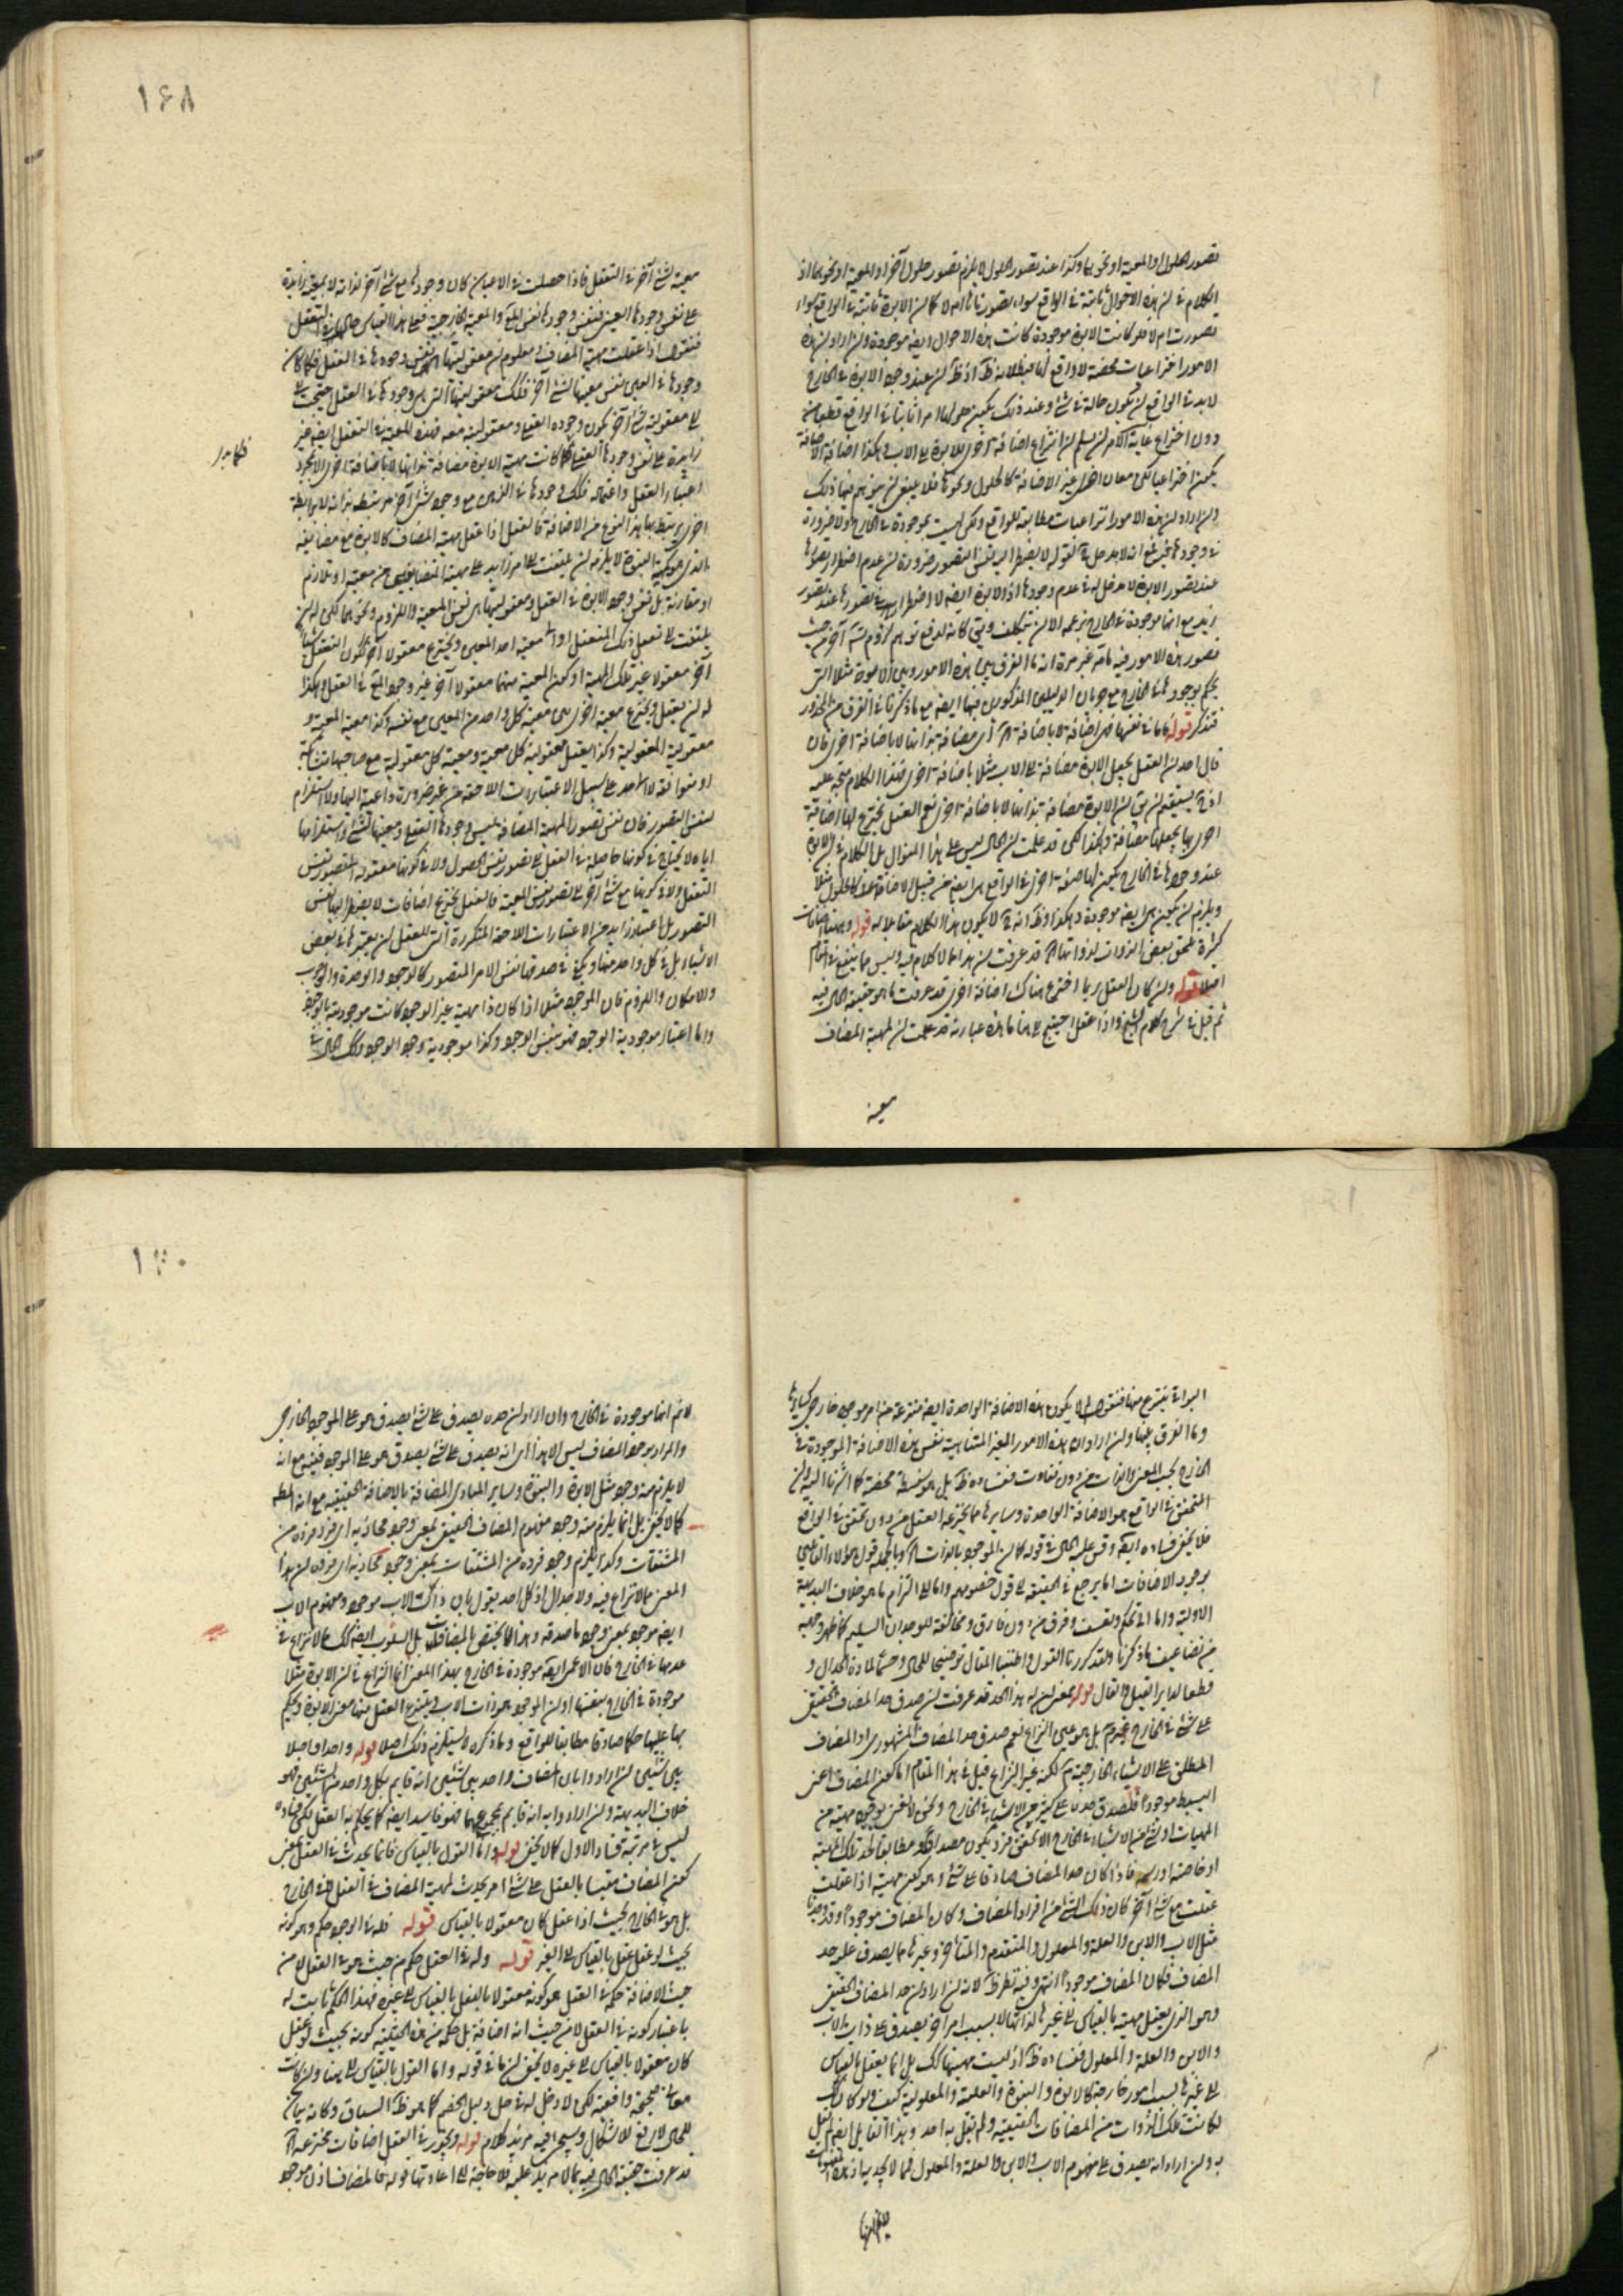 ١۶٨
تصور الحلول او المعية او نحوهما وكذا عند تصور الحلول لا يلزم تصور حلول آخر او المعية او نحوهما اذ
الكلام فى ان هذه الاحوال ثابتة فى الواقع سواء تصورناها ام لا كما ان الابوة ثابتة فى الواقع سواء
تصورت ام لا فلو كانت الابوة موجودة كانت هذه الاحوال ايضا موجودة وان اراد ان هذه
الامور اختراعيات محضة لا واقع لها فبطلانه ظ اذ ظ ان عند وجود الابوة فى الخارج
لا بد فى الواقع ان يكون حالة فى شئ وعند ذلك يكون حلولها امرا ثابتا فى الواقع قطعا من
دون اختراع غاية الامر ان يسلم ان انتزاع اضافة اخرى للابوة الى الاب وهكذا اضافة الاضافة
يكون اختراعيا لكن معان اخر غير الاضافة كالحلول ونحوها فلا ينبغى ان يتوهم فيها ذلك
وان اراد ان هذه الامور انتزاعيات مطابقة للواقع ولكن ليست بموجودة فى الخارج ولا ضرورة
فى وجودها ففيه انه لا مدخل ح لقوله لا يضطر اليه نفس التصور ضرورة ان عدم اضطرار تصورها
عند تصور الابوة لا مدخل له فى عدم وجودها اذ الابوة ايضا لا اضطرار الى تصورها عند تصور
زيد مع انها موجودة فى الخارج بزعمه الا ان يتكلف ويق كانه لدفع توهم لزوم آخر من حيث
تصور هذه الامور فيه تامة غير مرة انه ما الفرق بين هذه الامور وبين الابوة مثلا التى
يحكم بوجودها فى الخارج مع جريان الدليلين المذكورين فيها ايضا مع ما ذكرنا فى الفرق من المحذور
فتذكر قوله فاما فى نفسها فهى اضافة لا باضافة اى مضافة بذاتها لا باضافة اخرى فان
قال احد ان العقل يجعل الابوة مضافة الى الاب مثلا باضافة اخرى فهذا الكلام متجه عليه
اذ ح يستقيم ان يق ان الابوة مضافة بذاتها لا باضافة اخرى نعم العقل يخترع لها اضافة
اخرى بها يجعلها مضافة وهكذا لكن قد علمت ان الحال ليس على هذا المنوال بل الكلام فى ان الابوة
عند وجودها فى الخارج يكون لها صفة اخرى فى الواقع هى ايضا من قبيل الاضافة كالحلول مثلا
ويلزم ان يكون هى ايضا موجودة وهكذا وظ انه ح لا يكون هذا الكلام مقابلا له قوله وههنا اضافات
كثيرة تلحق بعض الذوات لذواتها قد عرفت ان هذا مما لا كلام فيه وليس مما ينفع فى المقام
اصلا قوله وان كان العقل ربما اخترع هناك اضافة اخرى قد عرفت ما هو حقيقة الحال فيه
ثم قيل فى شرح كلام الشيخ واذا عقل احتيج الى هنا ما هذه عبارته قد علمت ان لمهية المضاف
معية
معية لشئ آخر فى التعقل فاذا حصلت فى الاعيان كان وجودها مع شئ آخر لذاته لا بمعية زايدة
على نفس وجودها العينى فنفس وجودها نفس المع والمعية الخارجية فعلى هذا القياس حالها فى التعقل
فنقول اذا عقلت مهية المضاف فى معلوم ان معقوليتها هى نفس وجودها فى العقل فكما كان
وجودها فى العين نفس معيتها لشئ آخر فكذلك معقوليتها التى هى وجودها فى العقل احتيجت
الى معقولية شئ آخر يكون وجوده العقلى ومعقوليته معه فهذه المعية فى التعقل ايضا غير
زايدة على نفس وجودها العقلى فكما كانت مهية الابوة مضافة بذاتها لا باضافة اخرى الا بمجرد
اعتبار العقل واعتماله فكذلك وجودها فى الذهن مع وجود شئ آخر مرتبطة بذاته لا برابطة
اخرى يرتبط بها هذا النوع من الاضافة فالعقل اذا عقل مهية المضاف كالابوة مع مضايفه
الذى هو مهية البنوة لا يلزمه ان يلتفت الى امر زايد على مهية المتضايفين من معية او تلازم
او مقارنة بل نفس وجود الابوة فى العقل ومعقوليتها هى نفس المعية واللزوم ونحوهما لكن له ان
يلتفت الى تعقل ذلك المتعقل او الى معية احد المعين ويخترع معقولا آخر فيكون التعقل شيئا
آخر معقولا غير تلك المهية او يكون المعية منهما معقولا آخر غير وجود المع فى العقل وهكذا
له ان يعقل ويخترع معية اخرى هى معية كل واحد من المعين مع نفسه وكذا معية المعية و
معقولية المعقولية وكذا يعقل معقولية كل معية ومعية كل معقولية مع صاحبها متشابهة
او متوافقة لا الى حد على سبيل الاعتبارات اللاحقة من غير ضرورة داعية اليها ولا استلزام
لنفس التصور فان نفس تصور المهية المضافة ليس وجودها العقلى ومعيتها لشئ واستلزامها
اياه لا يحتاج فى كونها حاصلة فى العقل الى تصور نفس الحصول ولا فى كونها معقولة الى تصور نفس
التعقل ولا فى كونها مع شئ آخر الى تصور نفس المعية فالعقل يخترع اضافات لا يضطر اليها نفس
التصور بل باعتبار زايد من الاعتبارات اللاحقة المتكررة التى للعقل ان يعتبرها فى بعض
الاشياء بل فى كل واحد منها ويكفى فى صدقها نفس الامر المتصور كالوجود والوحدة والوجوب
والامكان واللزوم فان الموجود مثلا اذا كان ذا مهية غير الوجود كانت موجوديته بالوجود
واما اعتبار موجودية الوجود فهو بنفس الوجود وكذا موجودية وجود الوجود وكذلك الحال فى
١٧٠
البواقى ينتزع منها فنقول لم لا يكون هذه الاضافة الواحدة ايضا منتزعة من امر موجود خارجى كسايرها
وما الفرق بينها وان اراد ان هذه الامور الغير المتناهية نفس هذه الاضافة الموجودة فى
الخارج بحسب المعنى والذات من دون تفاوت ففساده ظ بل هو سفسطة محضة كما اشرنا اليه وان
المتحقق فى الواقع هو الاضافة الواحدة وسايرها مما يخترعه العقل من دون تحقق فى الواقع
فلا يخفى فساده ايضا وقس عليه الحال فى قوله كما ان الموجود بالذات وبالجملة قول هؤلاء القائلين
بوجود الاضافات اما يرجع فى الحقيقة الى قول خصومهم واما الى التزام ما هو خلاف البديهة
الاولية واما الى تحكم وتعسف وفرق من دون فارق ومخالفة للوجدان السليم كما ظهر وجهه
من تضاعيف ما ذكرنا ولقد كررنا القول واطنبنا المقال توضيحا للحال وحسما لمادة الجدال و
قطعا لدابر القيل والقال قوله فمعنى ان له هذا الحد قد عرفت ان صدق حد المضاف الحقيقى
على شئ فى الخارج غير مسلم بل هو عين النزاع نعم صدق حد المضاف المشهورى او المضاف
المطلق على الاشياء الخارجية مسلم لكنه غير النزاع قيل فى هذا المقام اما كون المضاف اعنى
البسيط موجودا فلصدق حده على كثير من الاشياء فى الخارج ونحن لا نعنى بوجود مهية من
المهيات او شئ من الاشياء فى الخارج الا تحقق فرد يكون مصداقا ومطابقا لحد تلك المهية
او خاصته او رسمه فاذا كان حد المضاف صادقا على شئ وهو كون مهيته اذا عقلت
عقلت مع شئ آخر كان ذلك الشئ من افراد المضاف وكان المضاف موجودا وقد وجدنا
مثل الاب والابن والعلة والمعلول والمتقدم والمتأخر وغيرها مما يصدق عليه حد
المضاف فكان المضاف موجودا انتهى وفيه نظر ظ لانه ان اراد ان حد المضاف الحقيقى
وهو الذى يعقل مهيته بالقياس الى غيرها لذاتها لا بسبب امر آخر يصدق على ذات الاب
والابن والعلة والمعلول ففساده ظ اذ ليست مهيتها كذلك بل انما يعقل بالقياس
الى غيرها بسبب امور خارجة كالابوة والبنوة والعلية والمعلولية كيف ولو كان كذلك
لكانت تلك الذوات من المضافات الحقيقية ولم يقل به احد وهذا القايل ايضا لم يقل
به وان اراد انه يصدق على مفهوم الاب والابن والعلة والمعلول فمما لا يجديه اذ هذه المفهومات
لا نم انها موجودة فى الخارج وان اراد ان حده يصدق على شئ يصدق هو على الموجود الخارجى
والمراد بوجود المضاف ليس الا هذا اى انه يصدق على شئ يصدق هو على الموجود ففيه مع انه
لا يلزم منه وجود مثل الابوة والبنوة وساير المبادى المضافة بالاضافة الحقيقية مع انه المط
كما لا يخفى بل انما يلزم منه وجود مفهوم المضاف الحقيقى بمعنى وجود محاذيه اى فرد فرده من
المشتقات وكذا يلزم وجود فرده من المشتقات بمعنى وجود محاذيه اى فرده ان هذا
المعنى مما لا نزاع فيه ولا جدال اذ كل احد يقول بان ذات الاب موجود ومفهوم الاب
ايضا موجود بمعنى وجود ما صدقه وهذا مما لا يختص بالمضافات بل السلوب ايضا كذلك مما لا نزاع فى
عدمها فى الخارج فان الاعمى ايضا موجودة فى الخارج بهذا المعنى انما النزاع فى ان الابوة مثلا
موجودة فى الخارج بنفسها او ان الموجود هو ذات الاب وينتزع العقل منها معنى الابوة ويحكم
بها عليها حكما صادقا مطابقا للواقع وما ذكره لا يستلزم ذلك اصلا قوله واحدا واصلا
بين شيئين ان ارادوا بان المضاف واحد بين شيئين انه قايم بكل واحد من الشيئين فهو
خلاف البديهة وان ارادوا به انه قايم بمجموعهما فهو فاسد ايضا كما يحكم به العقل لكن فساده
ليس فى مرتبة فساد الاول كما لا يخفى قوله واما القول بالقياس فانما يحدث فى العقل يعنى
كون المضاف مقيسا بالعقل على شئ امر يحدث لمهية المضاف فى العقل لا فى الخارج
بل هو فى الخارج بحيث اذا عقل كان معقولا بالقياس قوله فله فى الوجود حكم وهو كونه
بحيث لو عقل عقل بالقياس الى الغير قوله وله فى العقل حكم من حيث هو فى العقل لا من
حيث الاضافة حكمه فى العقل هو كونه معقولا بالفعل بالقياس الى غيره فهذا الحكم ثابت له
باعتبار كونه فى العقل لا من حيث انه اضافة بل حكمه من هذه الحيثية كونه بحيث لو عقل
كان معقولا بالقياس الى غيره لا يخفى ان ما فى قوله واما القول بالقياس الى هنا وان كانت
معان صحيحة واقعية لكن لا دخل له فى حل دليل الخصم كما هو ظ السياق وكانه بيان
للحال لا رفع للاشكال وسيجئ فيه مزيد كلام قوله ويجوز فى العقل اضافات مخترعة
قد عرفت حقيقة الحال فيه بما لا مزيد عليه فلا حاجة الى اعادتها قوله فالمضاف اذن موجود